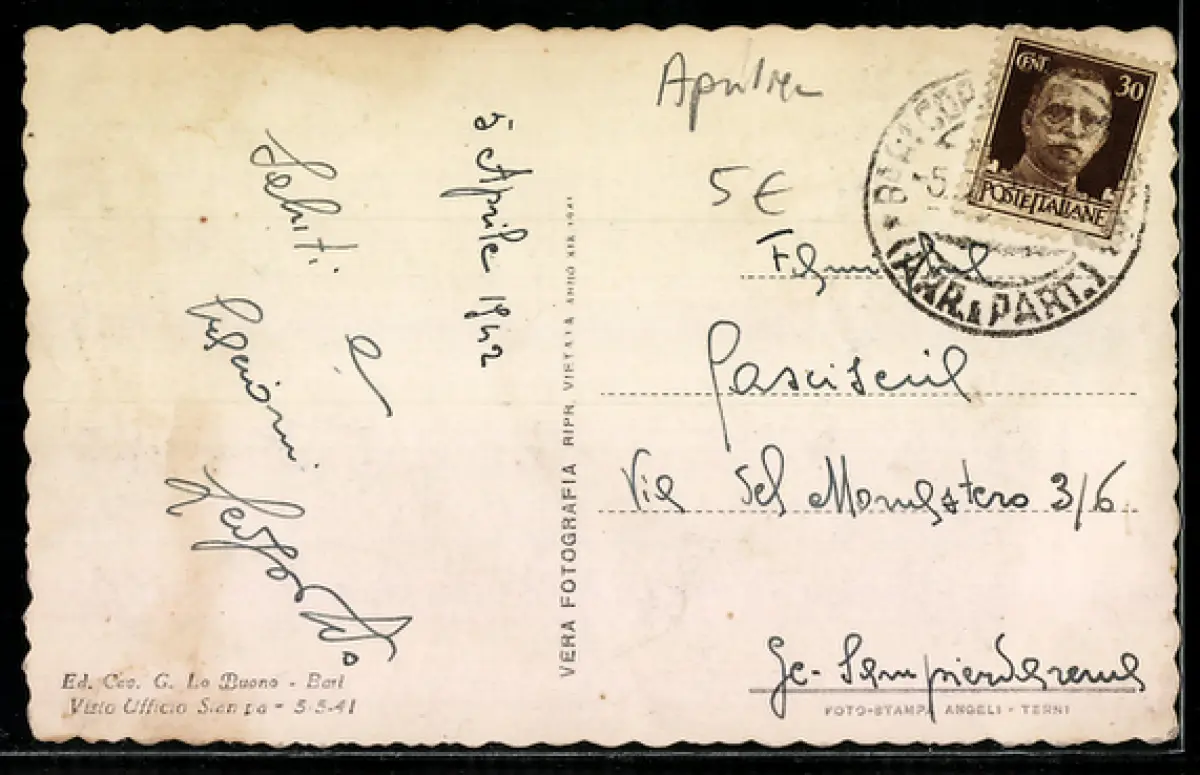 5 Aprile 1942
Saluti
e
Ed. Cav. G. Lo Buono - Bari
Visto Ufficio Stampa - 5-5-41
VERA FOTOGRAFIA RIPR. VIETATA ANNO XIX 1941
5 €
CENT. 30
POSTE ITALIANE
BARI
(ARR. & PART.)
Via del Monastero 3/6
Ge- Sampierdarena
FOTO-STAMPA ANGELI - TERNI